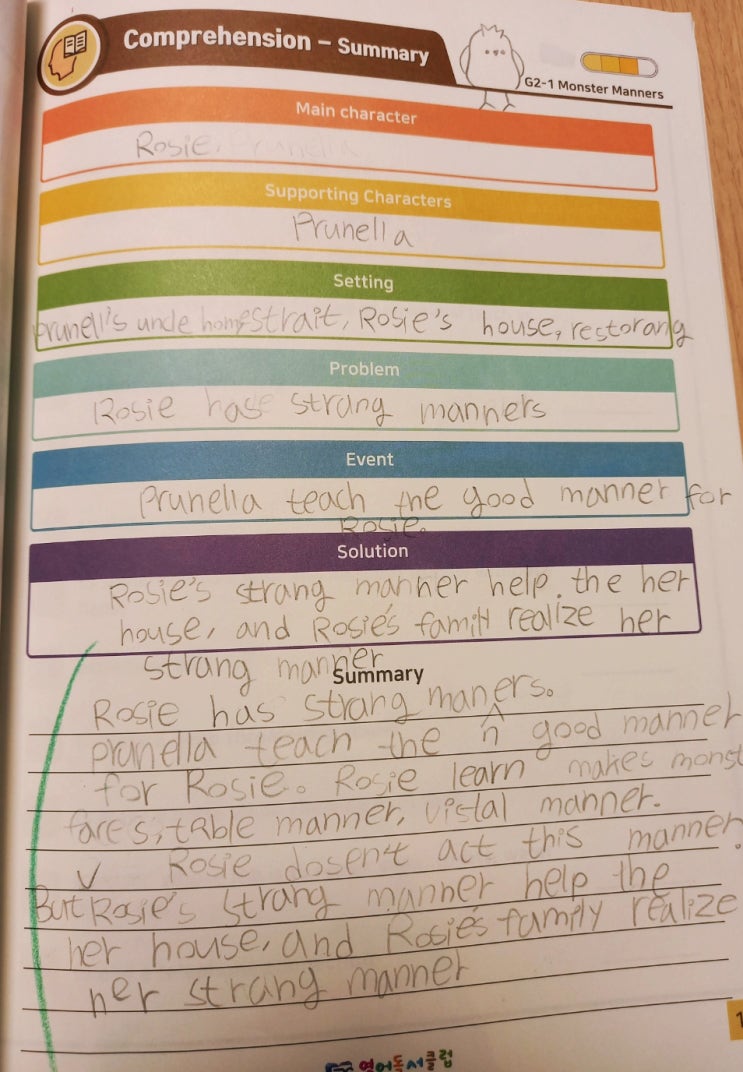 Comprehension – Summary
G2-1 Monster Manners
Main character
Rosie, Prunella
Supporting Characters
Prunella
Setting
prunell's uncle home strait, Rosie's house, restorang
Problem
Rosie hase strang manners
Event
prunella teach the good manner for
Rosie.
Solution
Rosie's strang manner help the her
house, and Rosie's family realize her
strang manner
Summary
Rosie has strang maners.
n
prunella teach the good manner
for Rosie. Rosie learn makes monst
fares, table manner, vistal manner.
v Rosie dosen't act this manner.
But Rosie's strang manner help the
her house, and Rosie's family realize
her strang manner
1
영어독서클럽